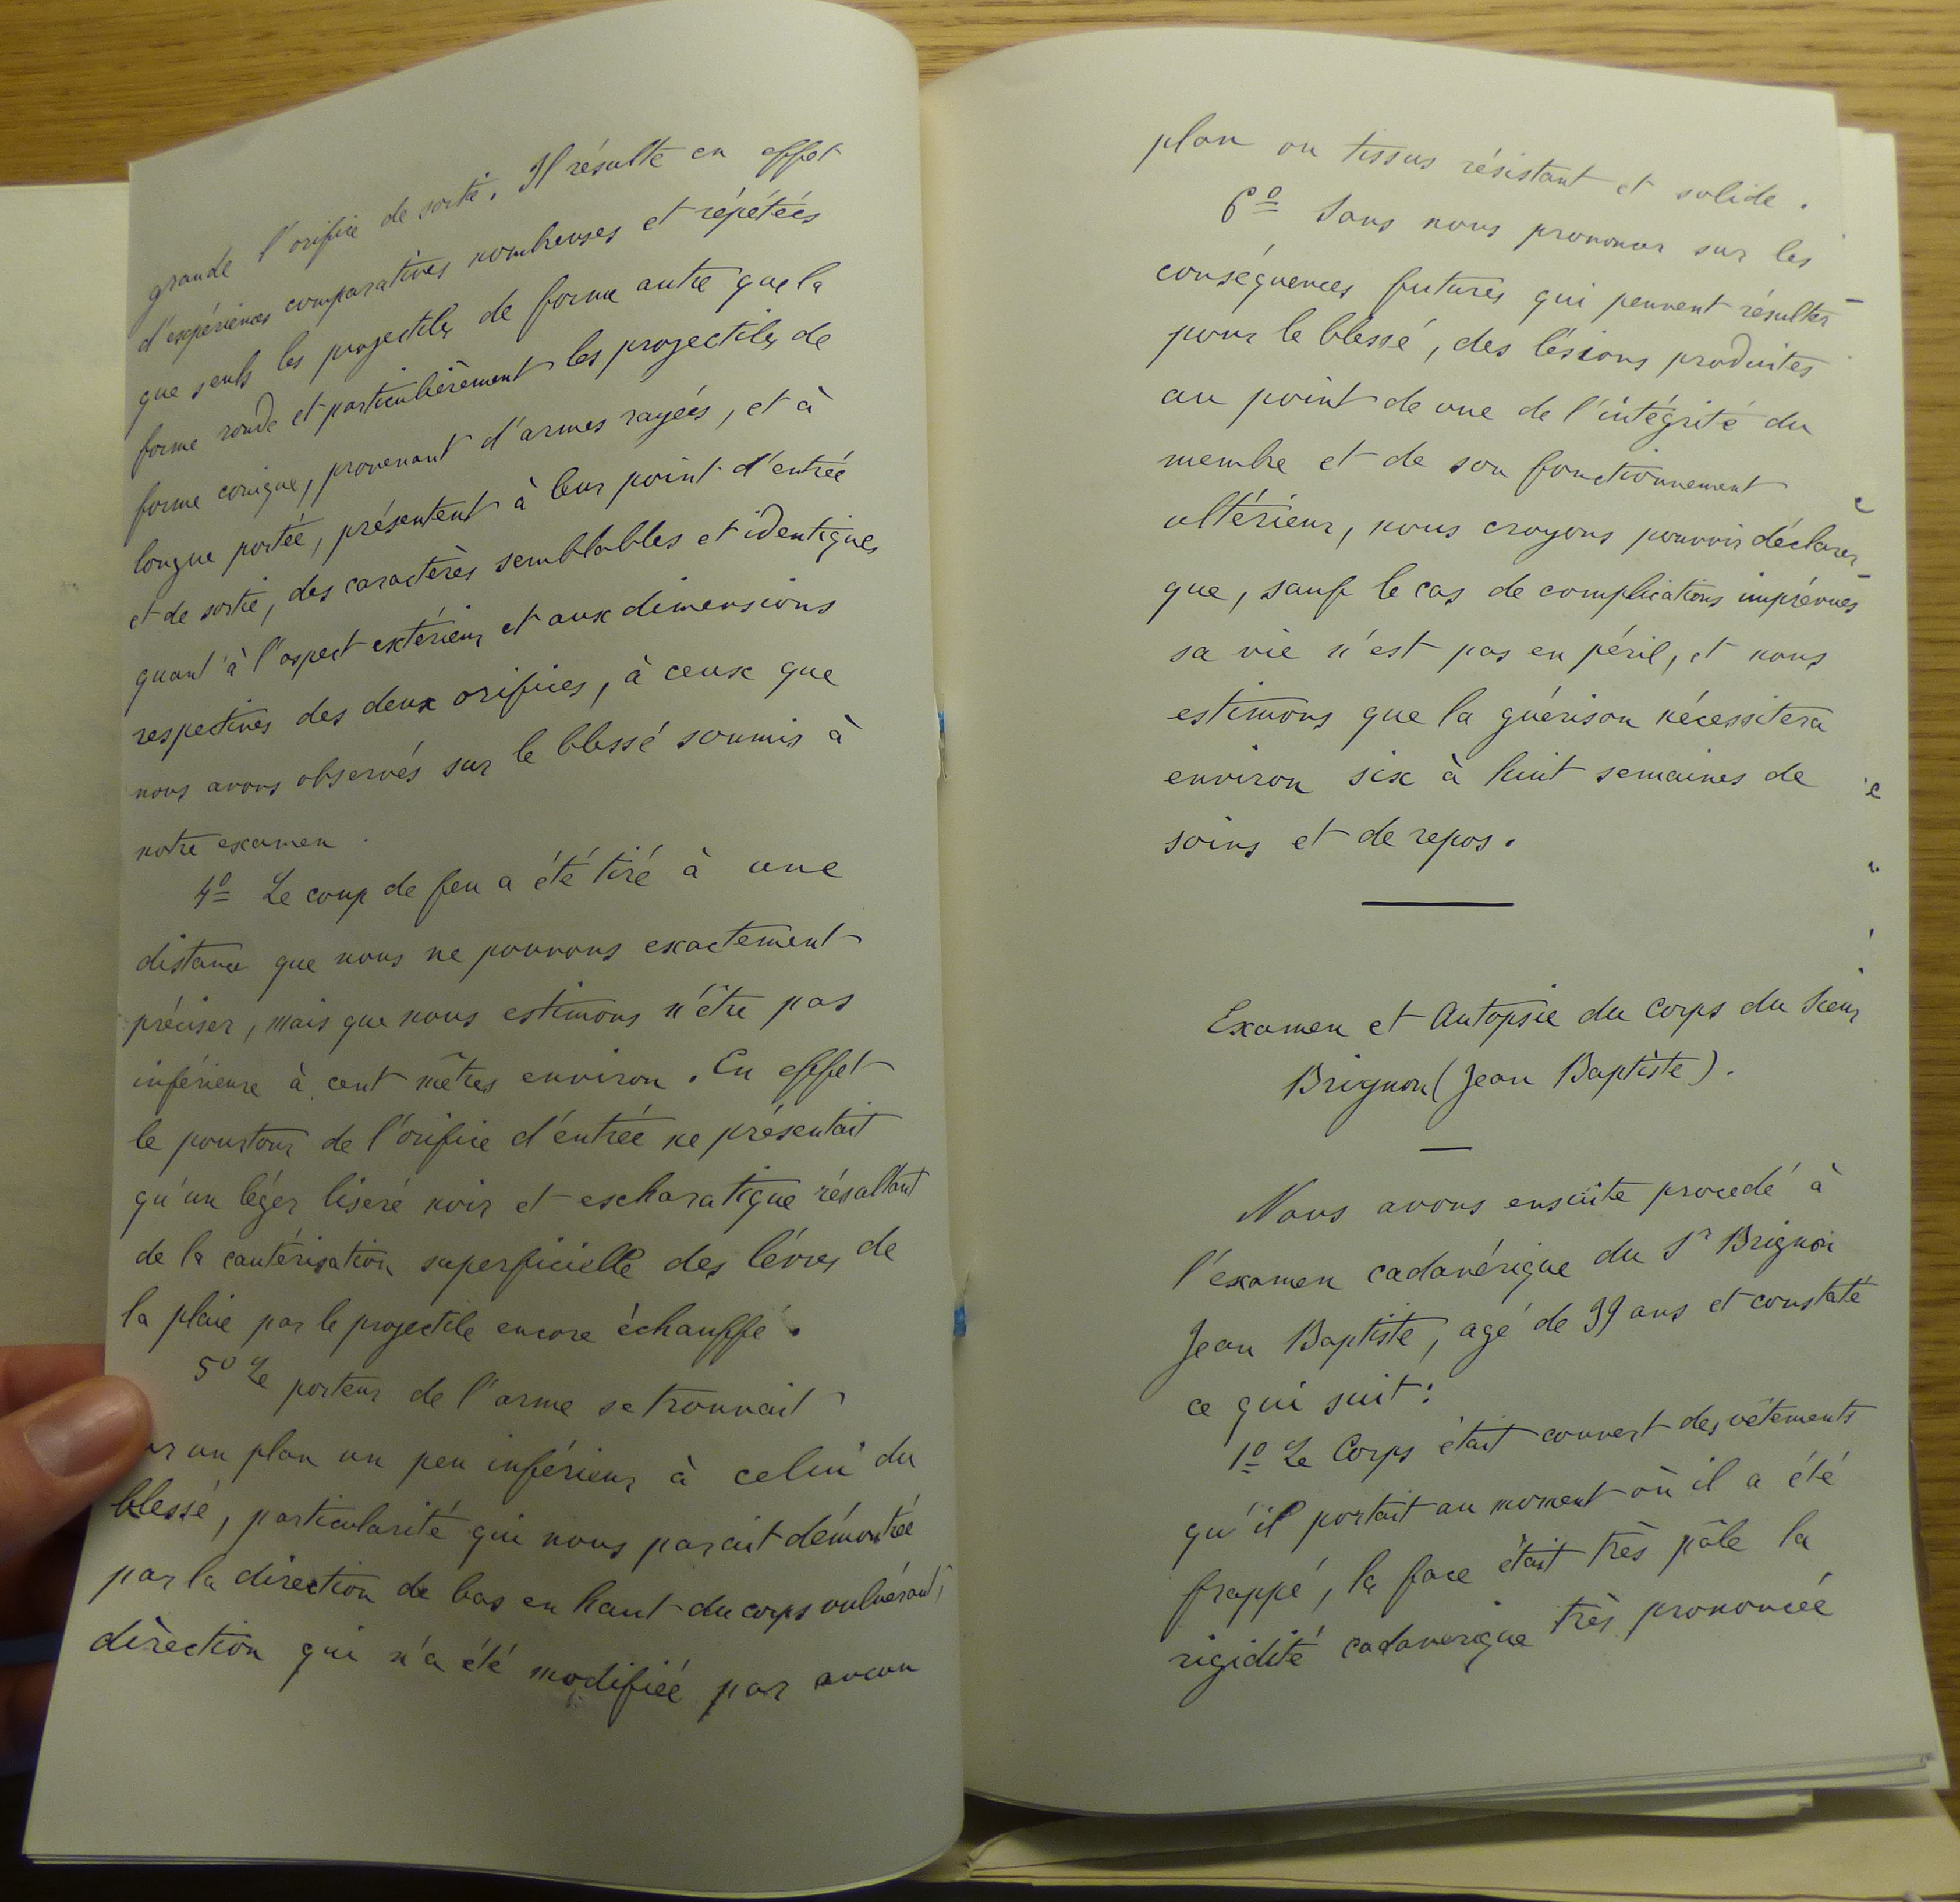 grande l'orifice de sortie. Il résulte en effet
d'expériences comparatives nombreuses et répétées
que seuls les projectiles de forme autre que la
forme ronde et particulièrement les projectiles de
forme conique, provenant d'armes rayées, et à
longue portée, présentent à leur point d'entrée
et de sortie, des caractères semblables et identiques
quant à l'aspect extérieur et aux dimensions
respectives des deux orifices, à ceux que
nous avons observés sur le blessé soumis à
notre examen.
4º Le coup de feu a été tiré à une
distance que nous ne pouvons exactement
préciser, mais que nous estimons n'être pas
inférieure à cent mètres environ. En effet
le pourtour de l'orifice d'entrée ne présentait
qu'un léger liseré noir et escharatique résultant
de la cautérisation superficielle des lèvres de
la plaie par le projectile encore échauffé.
5º Le porteur de l'arme se trouvait
un plan un peu inférieur à celui du
blessé, particularité qui nous parait démontrée
par la direction de bas en haut du corps vulnérant,
direction qui n'a été modifiée par aucun
plan ou tissus résistant et solide.
6º Sans nous prononcer sur les
conséquences futures qui peuvent résulter
pour le blessé, des lésions produites
au point de vue de l'intégrité du
membre et de son fonctionnement
ultérieur, nous croyons pouvoir déclarer
que, sauf le cas de complications imprévues
sa vie n'est pas en péril, et nous
estimons que la guérison nécessitera
environ six à huit semaines de
soins et de repos.
Examen et Autopsie du Corps du Sieur
Brignon (Jean Baptiste).
Nous avons ensuite procedé à
l'examen cadavérique du Sr Brignon
Jean Baptiste, agé de 39 ans et constaté
ce qui suit:
1º Le Corps était couvert des vêtements
qu'il portait au moment où il a été
frappé, la face était très pâle la
rigidité cadaverique très prononcée